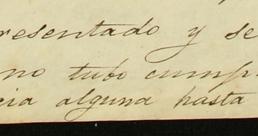 resentado y se
no tubo cump
cia alguna hasta